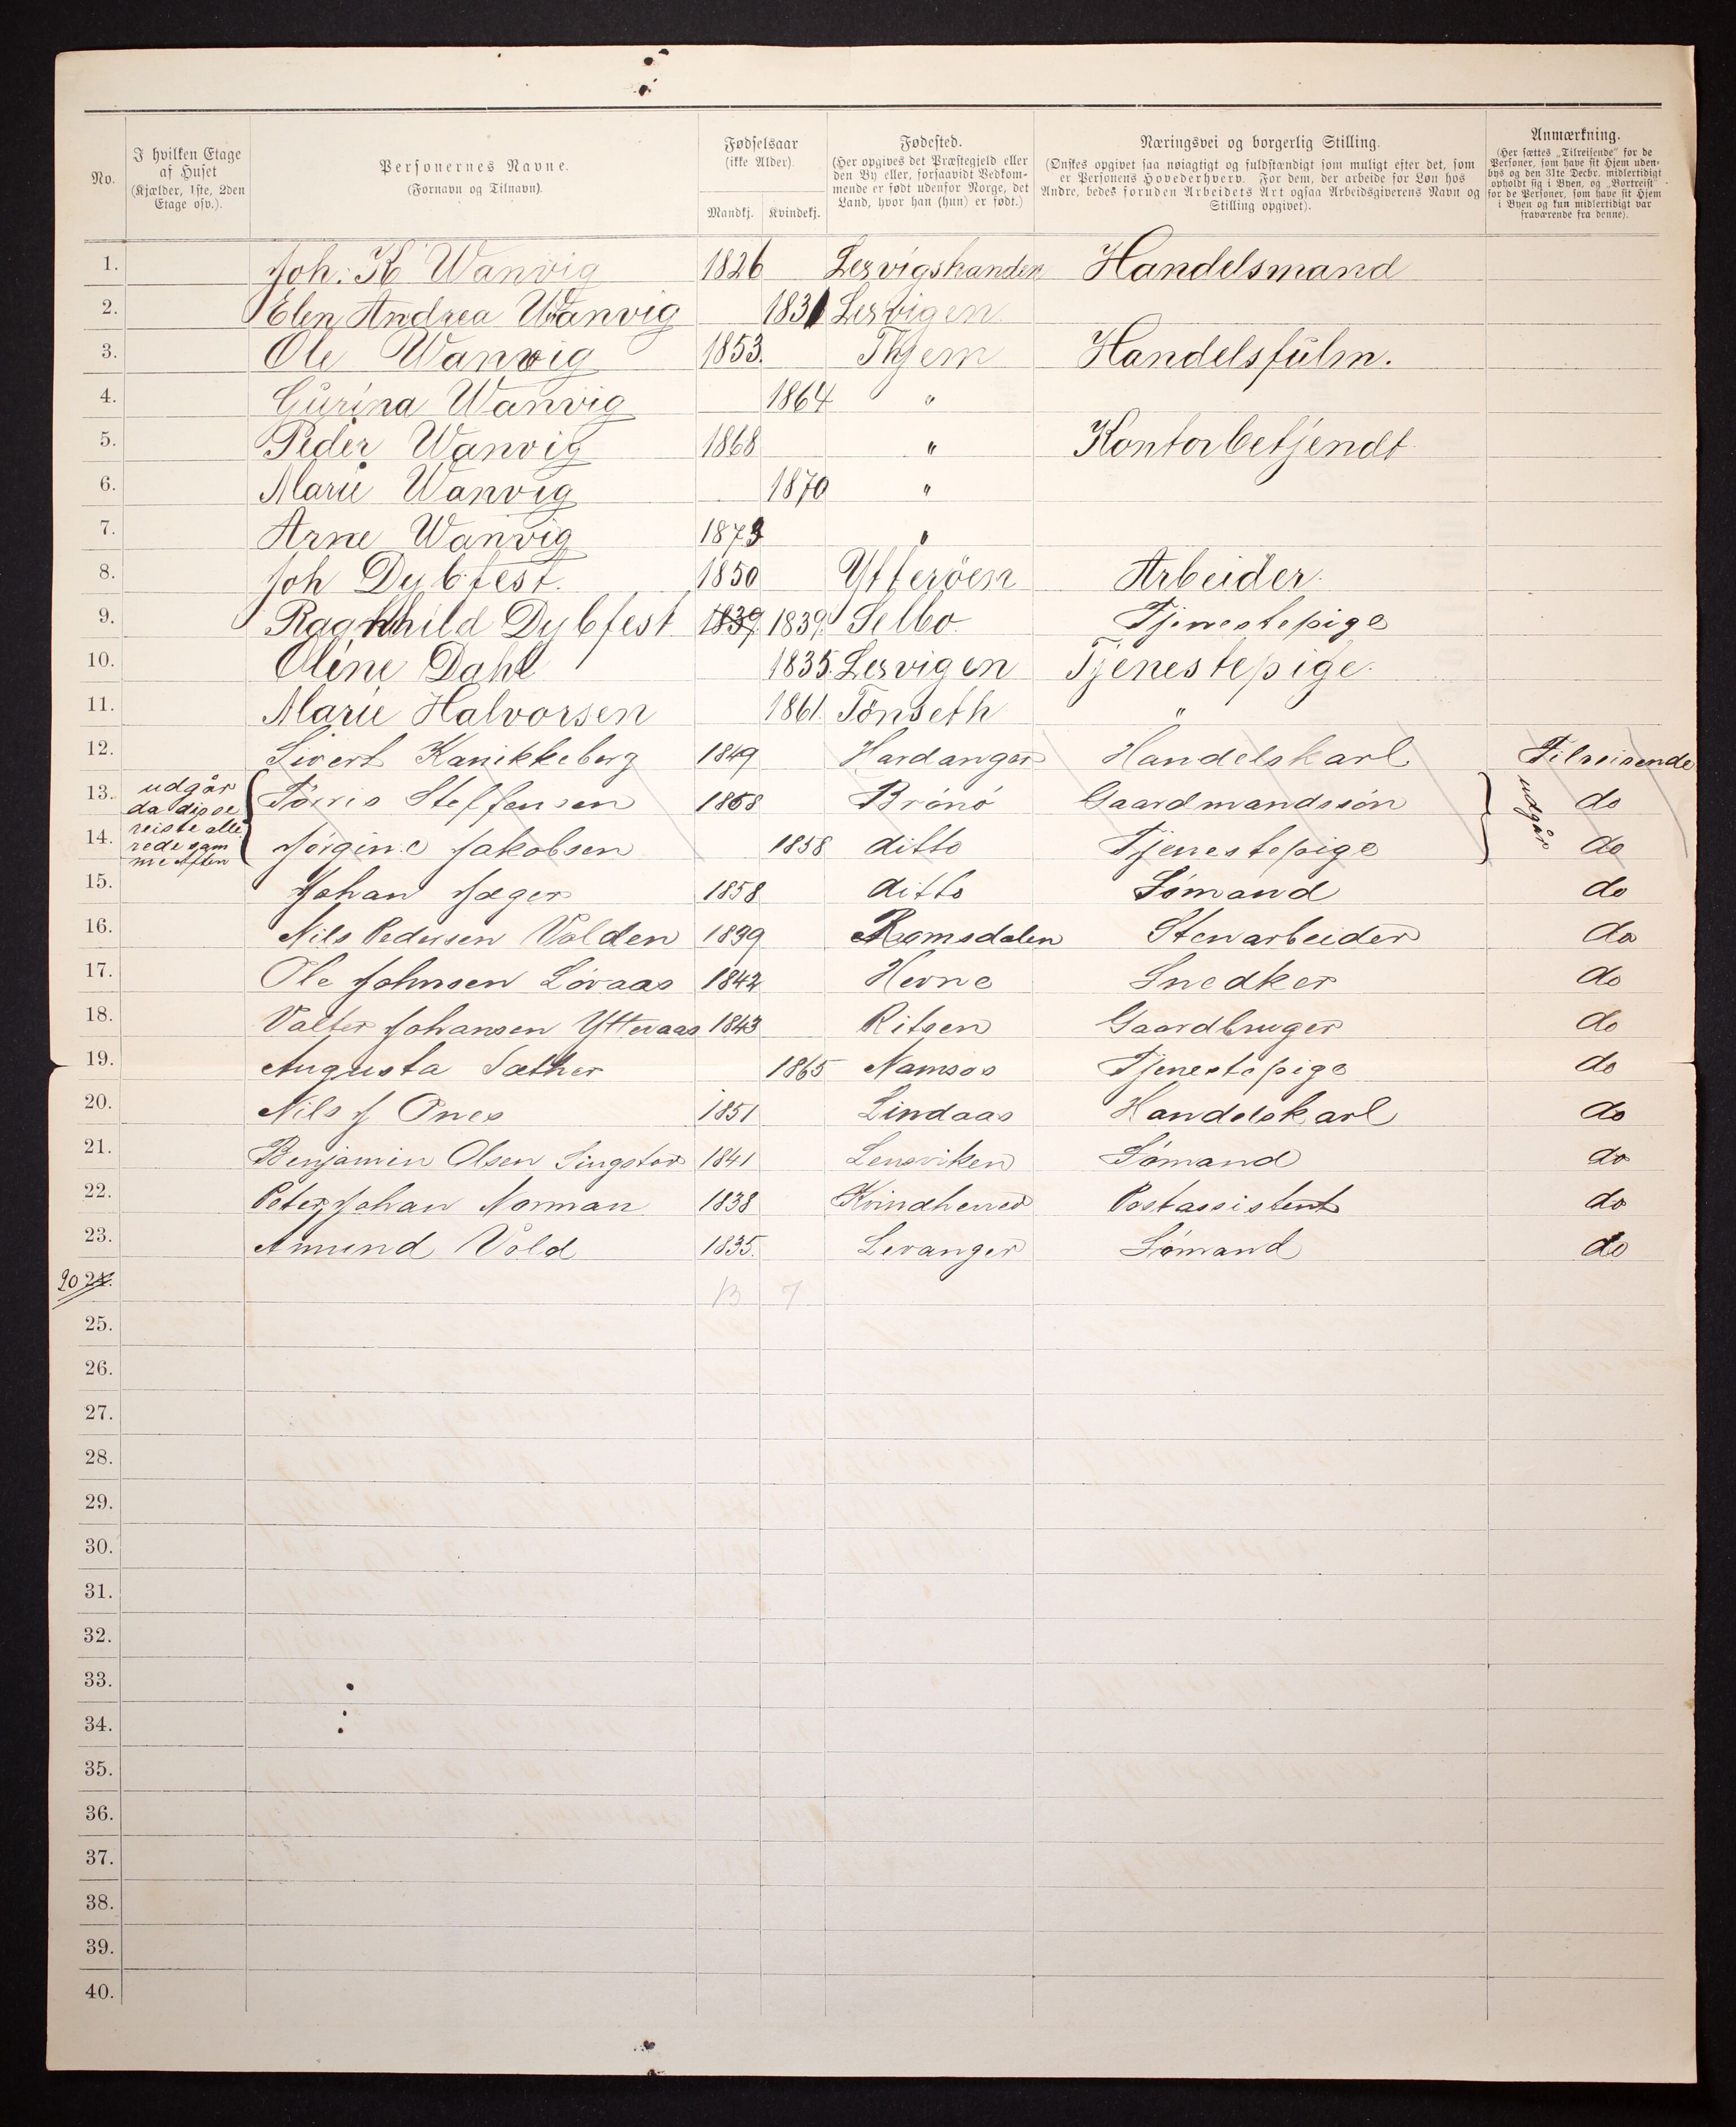 No.
I hvilken Etage af Huset (Kjælder, 1ste, 2den Etage osv.).
Personernes Navne. (Fornavn og Tilnavn).
Fødselsaar (ikke Alder). Mandkj. Kvindekj.
Fødested. (Her opgives det Præstegjeld eller den By eller, forsaavidt Vedkommende er født udenfor Norge, det Land, hvor han (hun) er født.)
Næringsvei og borgerlig Stilling. (Ønskes opgivet saa nøiagtigt og fuldstændigt som muligt efter det, som er Personens Hovederhverv. For dem, der arbeide for Løn hos Andre, bedes foruden Arbeidets Art ogsaa Arbeidsgiverens Navn og Stilling opgivet).
Anmærkning. (Her sættes „Tilreisende" for de Personer, som have sit Hjem udenbys og den 31te Decbr. midlertidigt opholdt sig i Byen, og „Bortreist" for de Personer, som have sit Hjem i Byen og kun midlertidigt var fraværende fra denne).
1. Joh: K Wanvig 1826 Lexvigstranden Handelsmand
2. Elen Andrea Wanvig 1831 Lexvigen
3. Ole Wanvig 1853. Thjem Handelsfulm.
4. Gurina Wanvig 1864 "
5. Peder Wanvig 1868 " Kontorbetjendt
6. Marie Wanvig 1870 "
7. Arne Wanvig 1873 "
8. Joh Dybfest. 1850 Ytterøen Arbeider.
9. Ragnhild Dybfest 1839 1839. Selbo Tjenestepige
10. Oline Dahl 1835. Lexvigen Tjenestepige.
11. Marie Halvorsen 1861. Tønseth "
12. Sivert Kanikkeberg 1849 Hardanger Handelskarl Tilreisende
13. Tørris Steffensen 1858 Brønø Gaardmandssøn do
14. Jørgine Jakobsen 1858 ditto Tjenestepige do
udgår da disse reiste allerede samme Aften
udgår
15. Johan Jæger 1858 ditto Sømand do
16. Nils Pedersen Volden 1839 Romsdalen Stenarbeider do
17. Ole Johnsen Løvaas 1842 Hevne Snedker do
18. Valter Johansen Ytteraas 1843 Ritsen Gaardbruger do
19. Augusta Sæther 1865 Namsos Tjenestepige do
20. Nils J Ones 1851 Lindaas Handelskarl do
21. Benjamin Olsen Singstor 1841 Lensviken Sømand do
22. Peter Johan Norman 1838 Kvindherred Postassistent do
23. Amund Vold 1835. Levanger Sømand do
20 24. 13 7
25.
26.
27.
28.
29.
30.
31.
32.
33.
34.
35.
36.
37.
38.
39.
40.